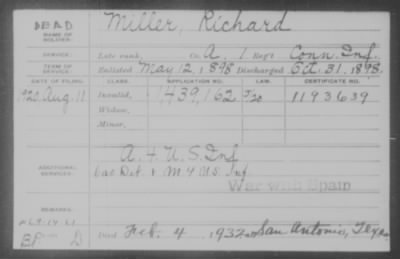 DEAD
NAME OF SOLDIER: Miller, Richard
SERVICE: Late rank, Co. A, 1 Reg't Conn. Inf.
TERM OF SERVICE: Enlisted May 12, 1898 Discharged Oct. 31, 1898.
DATE OF FILING. CLASS. APPLICATION NO. LAW. CERTIFICATE NO.
1920 Aug. 11 Invalid, 1,439,162 J/20 1193639
Widow,
Minor,
ADDITIONAL SERVICES: A. 4 U.S. Inf
Det. & M.G. U.S. Inf
War with Spain
REMARKS:
Died Feb. 4, 1932 at San Antonio, Texas